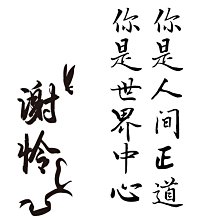 你是人间正道
你是世界中心
谢怜